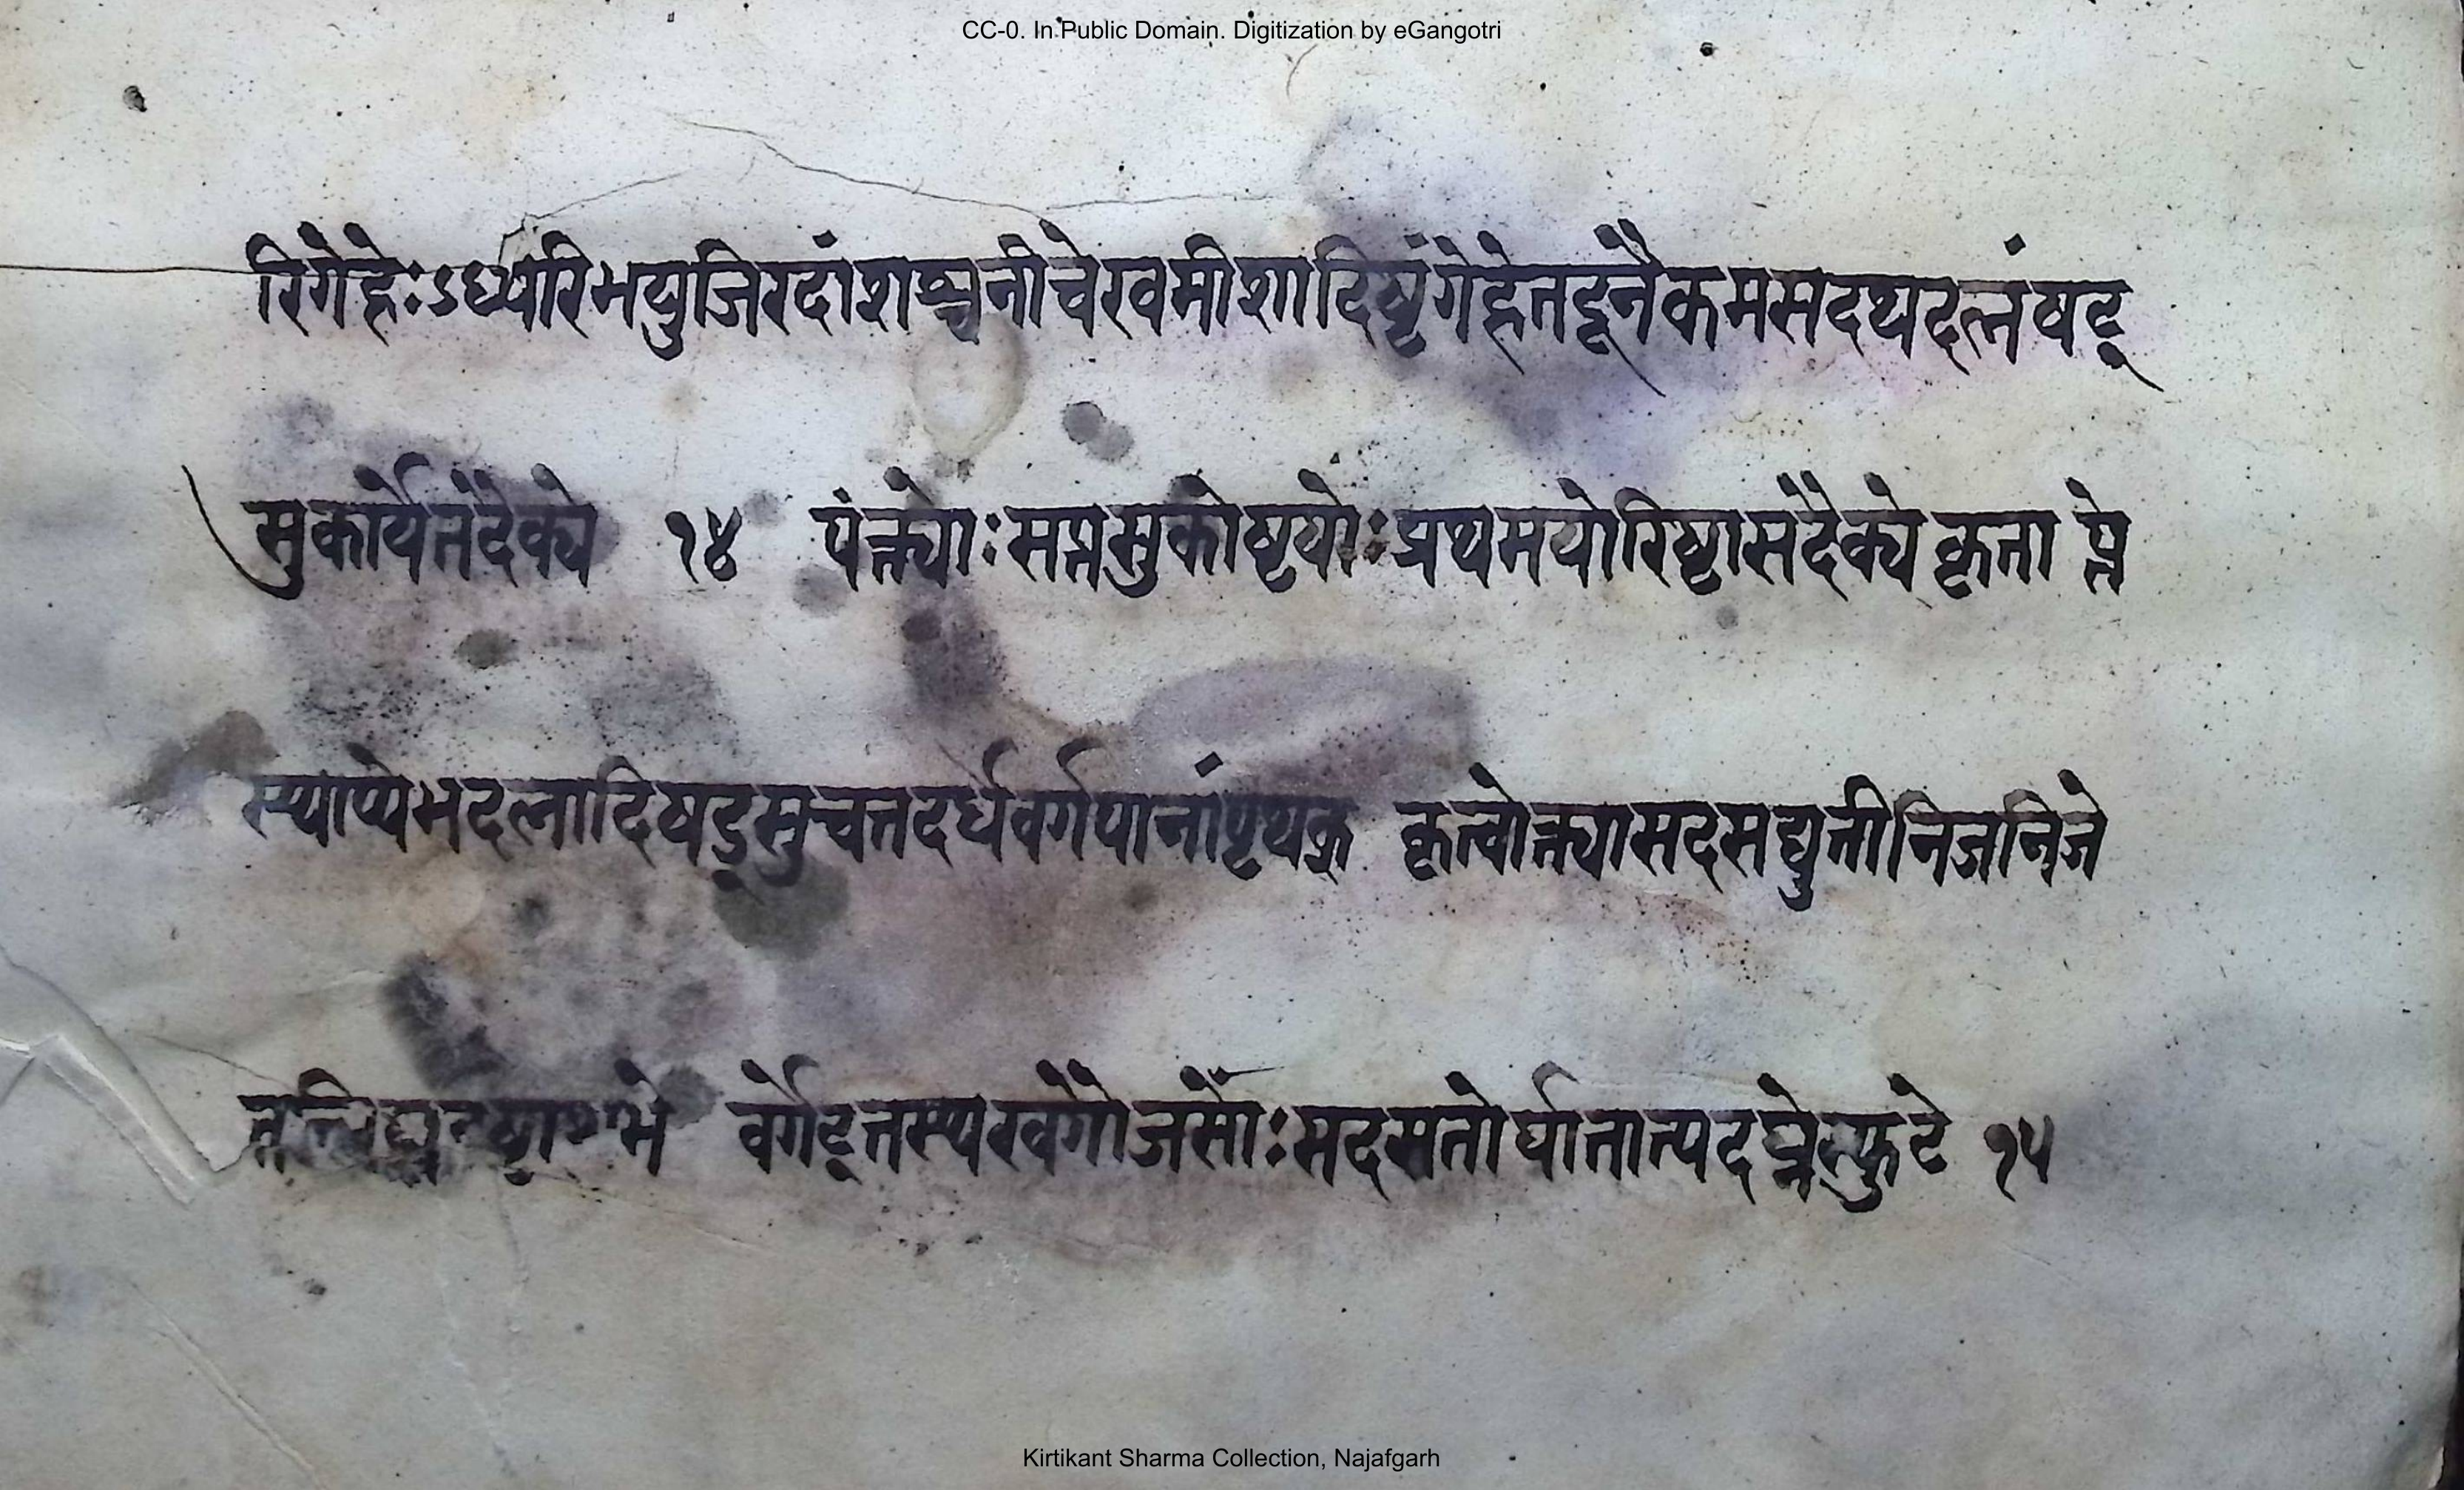 CC-0. In Public Domain. Digitization by eGangotri
रिगेहेःऽध्यरिभयुजिरदांशश्चनीचेखमीशादिष्टंगेहेतद्दूनैकमसदथदलनंषट्
सुकार्येतदैक्ये १४ पंक्त्योःसप्तसुकोष्टयोःप्रथमयोरिष्टासदैक्ये कृता प्ते
स्थाप्येभदलादिषट्सुचतदर्धवर्गपानांपृथक् कृत्वोक्त्यासदसद्युतीनिजनिजे
वर्गेद्त्तस्थखेगौजसोःसदसतोर्घातात्पदघ्नेस्फुटे १५
Kirtikant Sharma Collection, Najafgarh